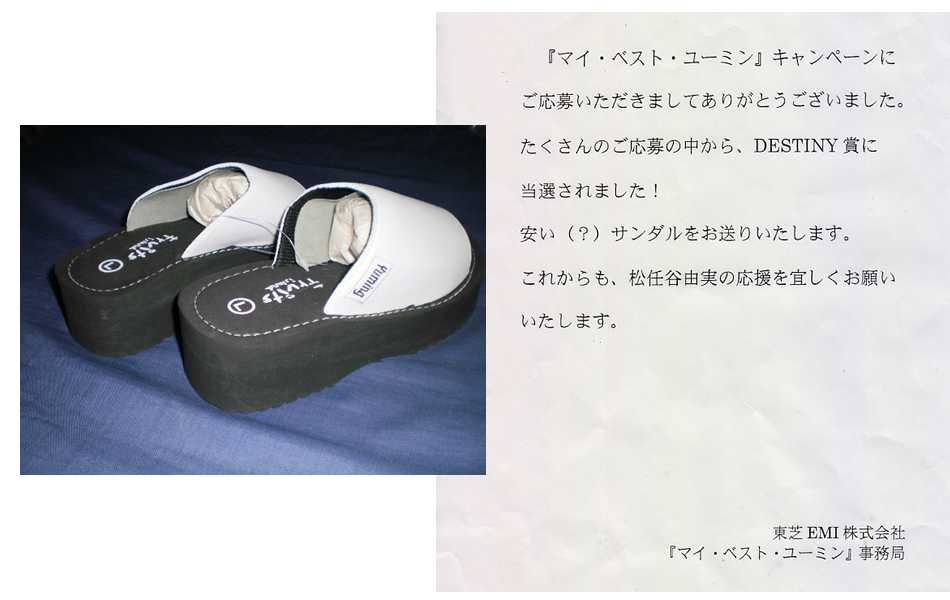 『マイ・ベスト・ユーミン』キャンペーンに
ご応募いただきましてありがとうございました。
たくさんのご応募の中から、DESTINY 賞に
当選されました！
安い（？）サンダルをお送りいたします。
これからも、松任谷由実の応援を宜しくお願い
いたします。
東芝 EMI 株式会社
『マイ・ベスト・ユーミン』事務局
Yuming
L
L